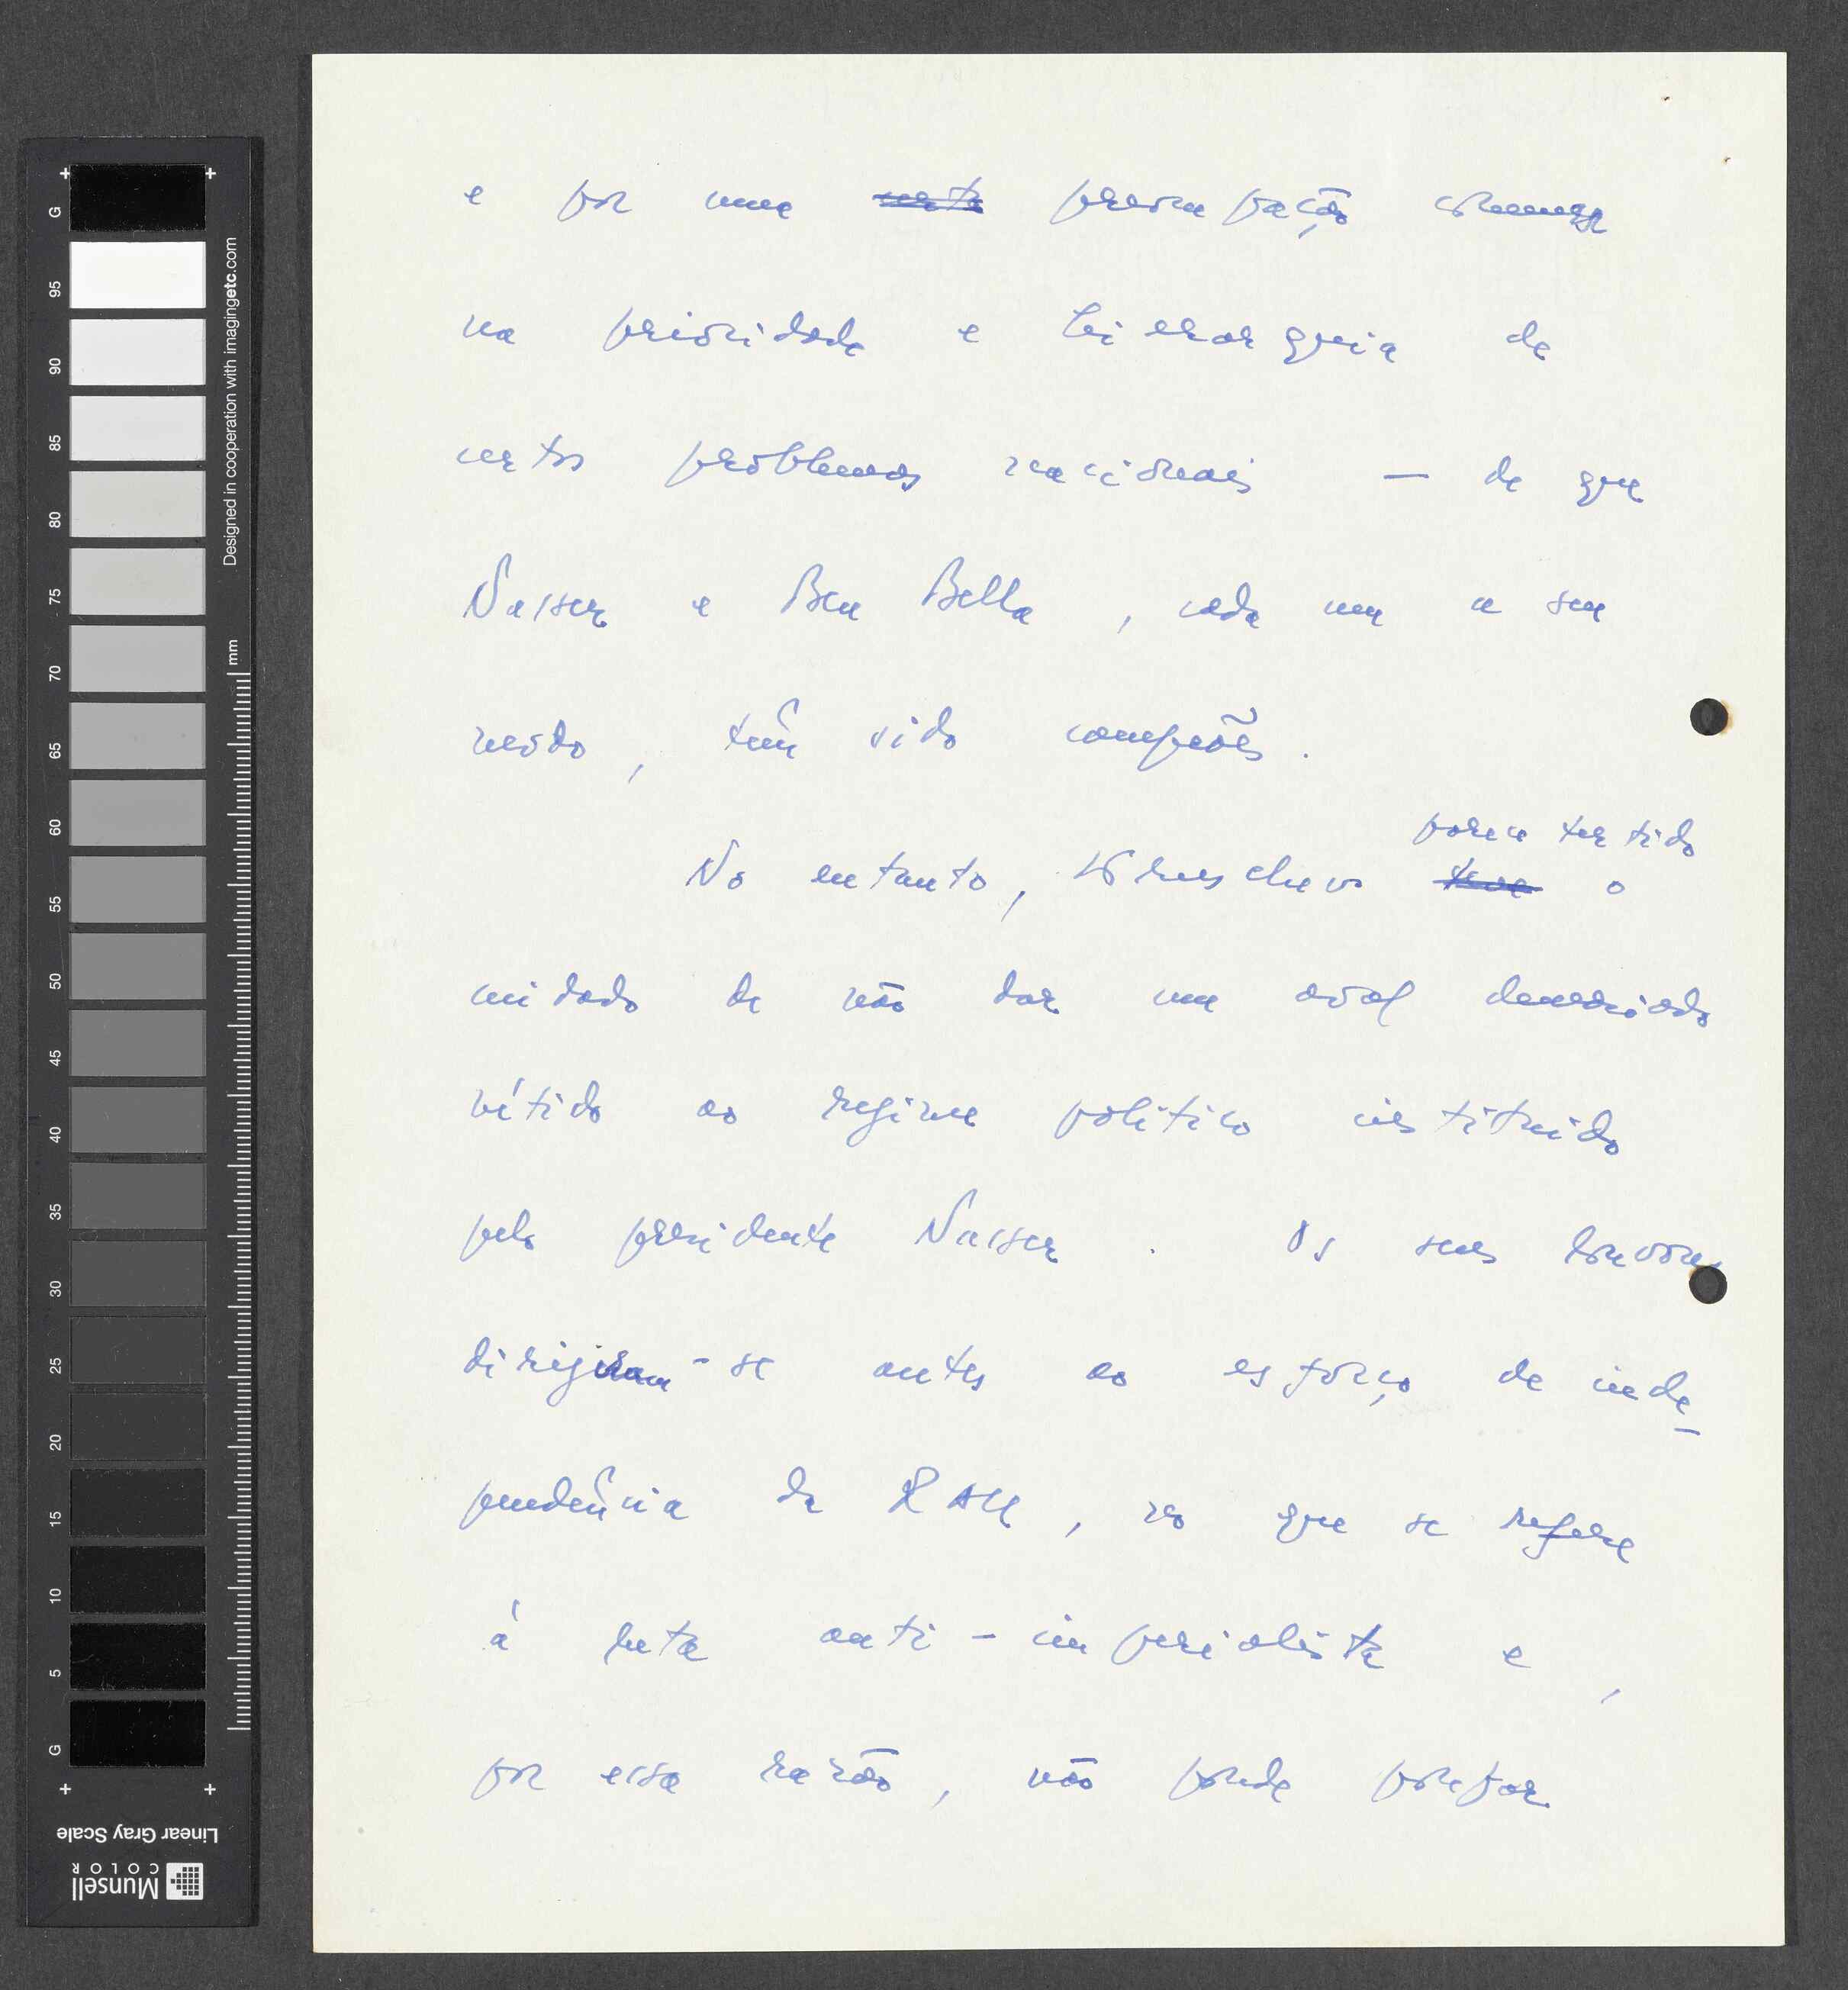 e por uma certa preocupação comum
na prioridade e hierarquia de
certos problemas nacionais — de que
Nasser e Ben Bella, cada um a seu
modo, têm sido campeões.
parece ter tido
No entanto, Khruschev teve o
cuidado de não dar um aval demasiado
nítido ao regime político instituido
pelo presidente Nasser. Os seus louvores
dirigiram-se antes ao esforço de inde-
pendência da RAU, no que se refere
à luta anti-imperialista e,
por essa razão, não pode
G
95
90
85
80
75
70
65
60
55
50
45
40
35
30
25
20
15
10
5
G
Designed in cooperation with imagingetc.com
mm
Linear Gray Scale
Munsell
COLOR